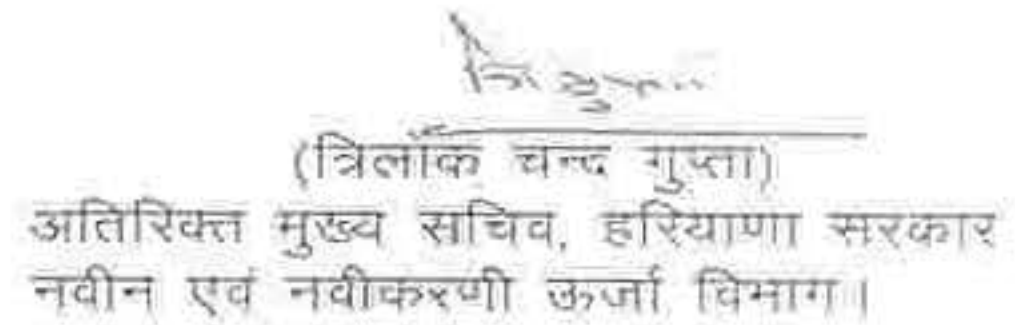 (त्रिलोक चन्द गुप्ता)
अतिरिक्त मुख्य सचिव, हरियाणा सरकार
नवीन एवं नवीकरणी ऊर्जा विभाग।